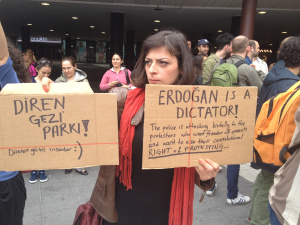 DİREN
GEZİ
PARKI!
ERDOĞAN IS A
DICTATOR!
The police is attacking brutally to the
protestors who want freedom of speech
and want to use their constitutional
RIGHT of PROTESTING...